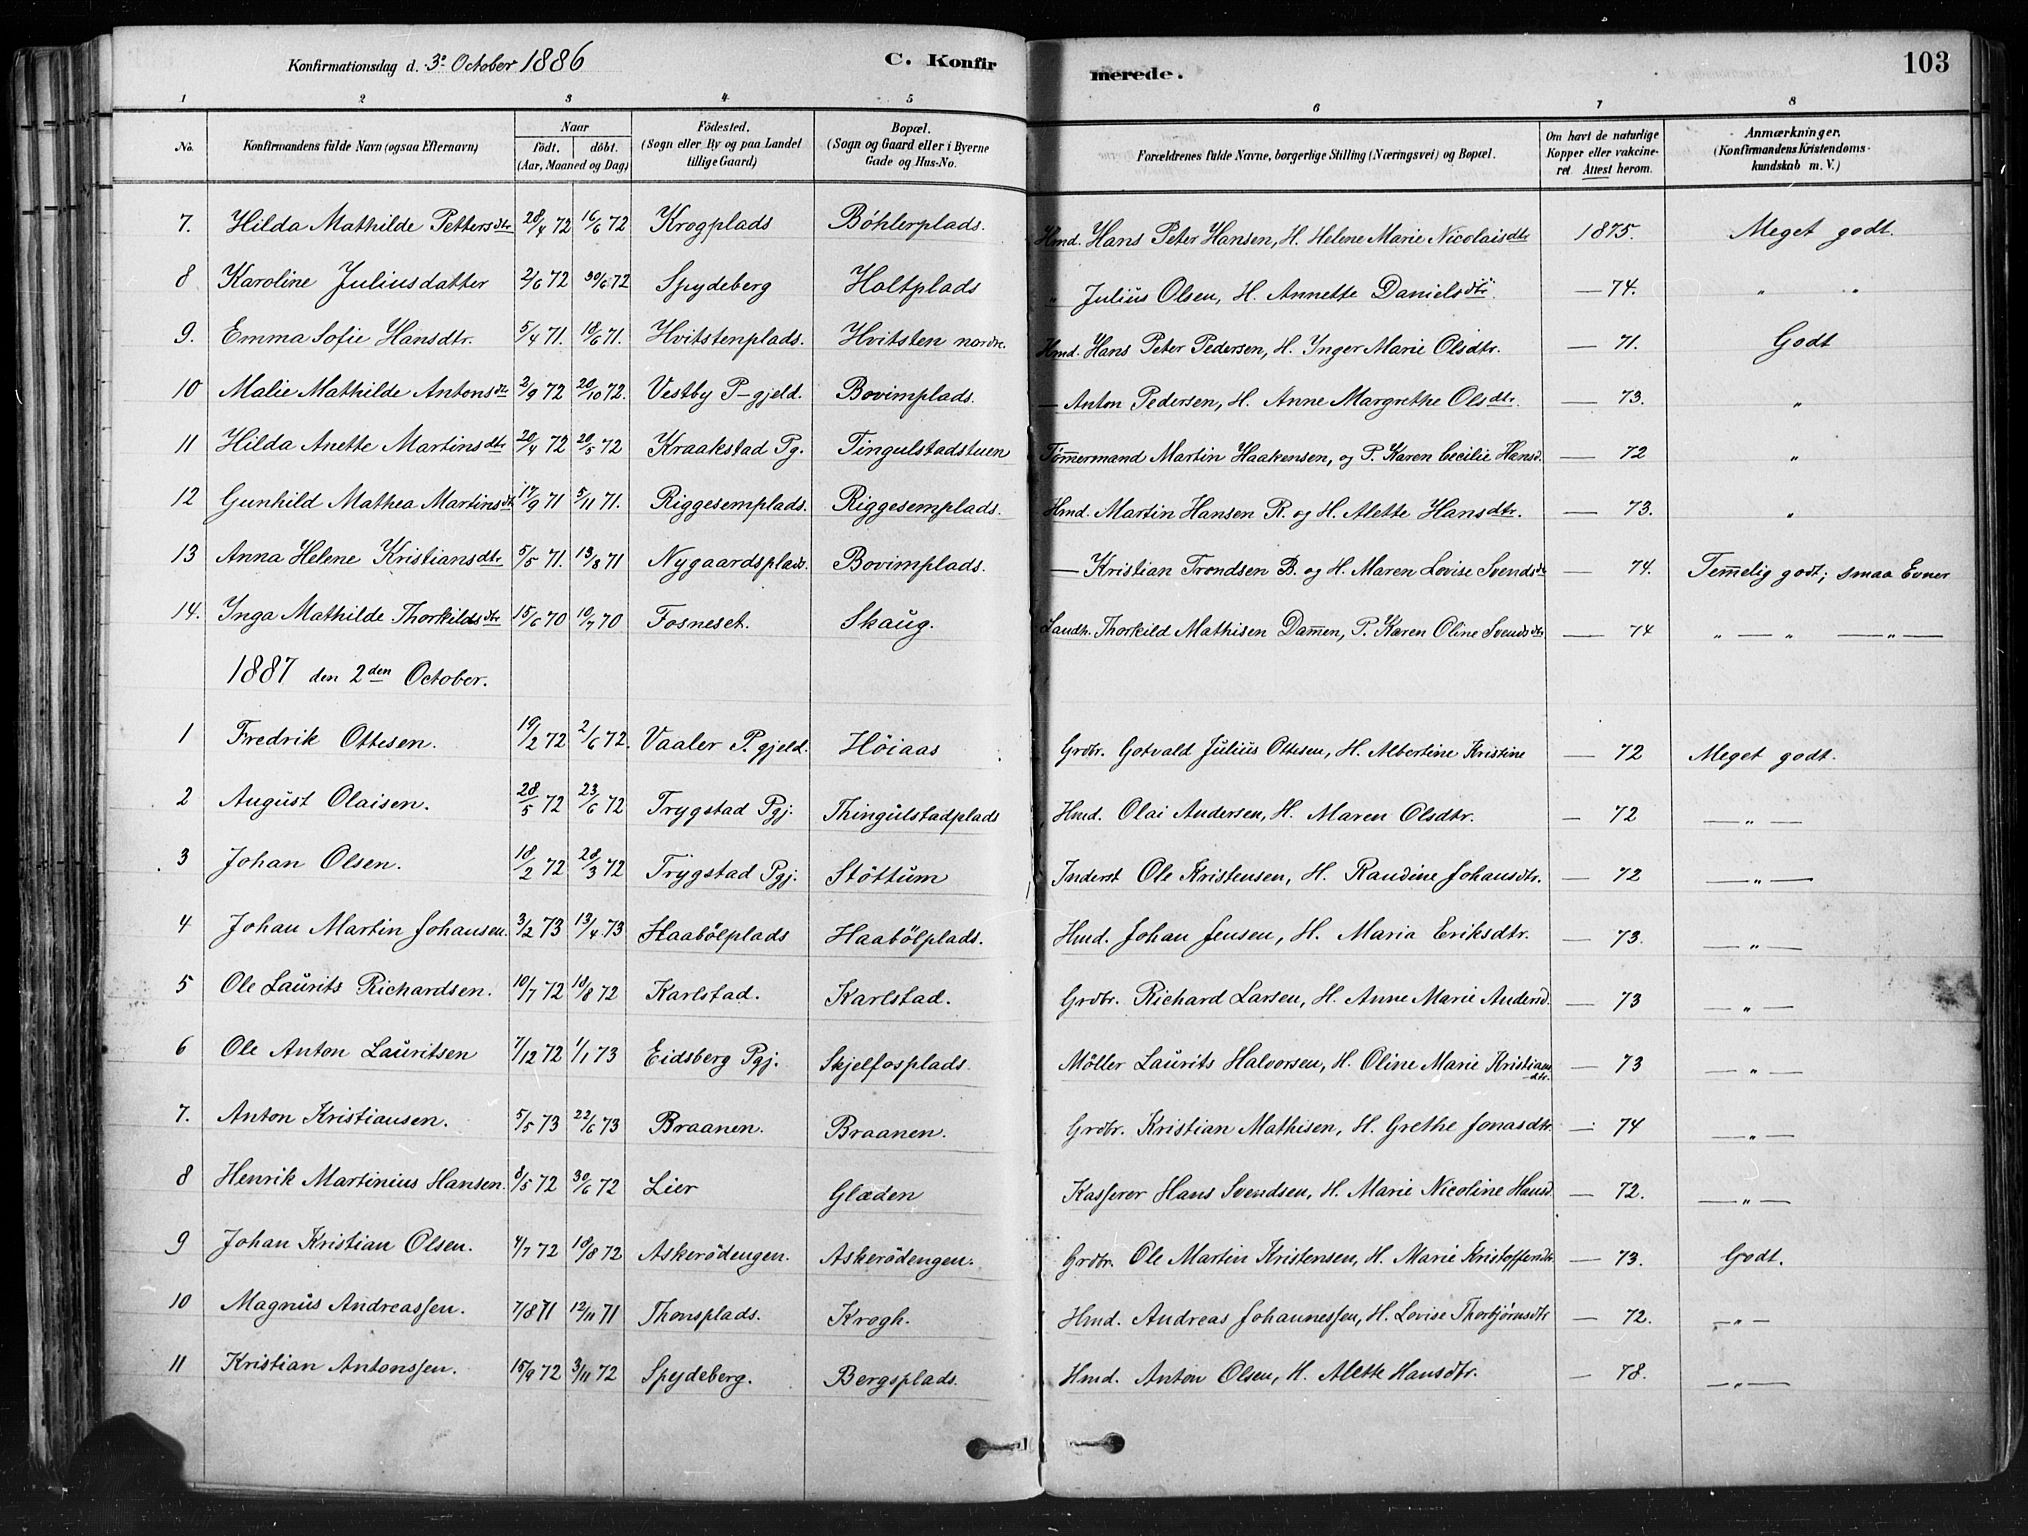 Konfirmationsdag d. 3º October 1886 C. Konfirmerede. 103
1 2 3 4 5 6 7 8
No. Konfirmandens fulde Navn (ogsaa Efternavn) Naar födt. döbt. (Aar, Maaned og Dag) Födested. (Sogn eller By og paa Landet tillige Gaard) Bopæl. (Sogn og Gaard eller i Byerne Gade og Hus-No. Forældrenes fulde Navne, borgerlige Stilling (Næringsvei) og Bopæl. Om havt de naturlige Kopper eller vakcineret Attest herom. Anmærkninger, (Konfirmandens Kristendomskundskab m. V.)
7. Hilda Mathilde Pettersdtr 28/4 72 16/6 72 Krogplads Böhlerplads. Hmd. Hans Peter Hansen, H. Helene Marie Nicolaisdtr 1875. Meget godt.
8 Karoline Juliusdatter 2/6 72 30/6 72 Spydeberg Holtplads " Julius Olsen, H. Annette Danielsdtr. — 74. " "
9. Emma Sofie Hansdtr. 5/4 71. 18/6 71. Hvitstenplads. Hvitsten nordre. Hmd. Hans Peter Pedersen, H. Inger Marie Olsdtr. — 71. Godt
10 Malie Mathilde Antonsdtr 2/9 72 20/10 72. Vestby P-gjeld. Bovimplads. — Anton Pedersen, H. Anne Margrethe Olsdtr. — 73. "
11 Hilda Anette Martinsdtr 20/4 72 20/5 72 Kraakstad Pg. Tingulstadstuen Tömmermand Martin Haakensen, og P. Karen Cecilie Hansd. — 72 "
12 Gunhild Mathea Martinsdtr 17/9 71 5/11 71. Riggesemplads. Riggesemplads. Hmd. Martin Hansen R. og H. Alette Hansdtr. — 73. "
13 Anna Helene Kristiansdtr 5/5 71. 13/8 71 Nygaardsplads. Bovimplads. — Kristian Trondsen B. og H. Maren Lovise Svendsdtr — 74. Temmelig godt; smaa Evner
14. Inga Mathilde Thorkildsdtr 15/6 70 10/7 70 Fosneset. Skaug. Landh. Thorkild Mathisen Dammen, P. Karen Oline Svendsdtr — 74 " — " — " —
1887 den 2den October.
1 Fredrik Ottesen. 19/2 72 2/6 72. Vaaler P. gjeld. Höiaas Grdbr. Gotvald Julius Ottesen, H. Albertine Kristine — 72 Meget godt.
2 August Olaisen. 28/5 72 23/6 72 Trygstad Pgj. Thingulstadplads Hmd. Olai Andersen, H. Maren Olsdtr. — 72 — " —
3 Johan Olsen. 18/2 72 28/3 72 Trygstad Pgj. Stöttum Inderst Ole Kristensen, H. Randine Johansdtr. — 72 — " —
4 Johan Martin Johansen. 3/2 73 13/4 73 Haabölplads Haabölplads. Hmd. Johan Jensen, H. Maria Eriksdtr. — 73. — " —
5 Ole Laurits Richardsen. 10/7 72 18/8 72 Karlstad. Karlstad. Grdbr. Richard Larsen, H. Anne Marie Andersd. — 73 — " —
6 Ole Anton Lauritsen 7/12 72 1/1 73 Eidsberg Pgj. Skjelfosplads. Möller Laurits Halvorsen, H. Oline Marie Kristiansdtr. — 73 — " —
7. Anton Kristiansen. 5/5 73 22/6 73 Braanen. Braanen. Grdbr. Kristian Mathisen, H. Grethe Jonasdtr. — 74 — " —
8 Henrik Martinius Hansen. 8/5 72 30/6 72 Lier Glæden Kasserer Hans Svendsen, H. Marie Nicoline Hansd. — 72. — " —
9 Johan Kristian Olsen. 4/7 72 18/8 72 Askerödengen. Askerödengen. Grdbr. Ole Martin Kristensen, H. Marie Kristoffersdtr — 73. Godt.
10 Magnus Andreassen. 7/8 71 12/11 71 Thonsplads. Krogh. Hmd. Andreas Johannessen, H. Lovise Thorbjørnsdtr — 72. — " —
11 Kristian Antonssen. 15/9 72 3/11 72 Spydeberg. Bergsplads. Hmd. Anton Olsen, H. Alette Hansdtr. — 78. — " —